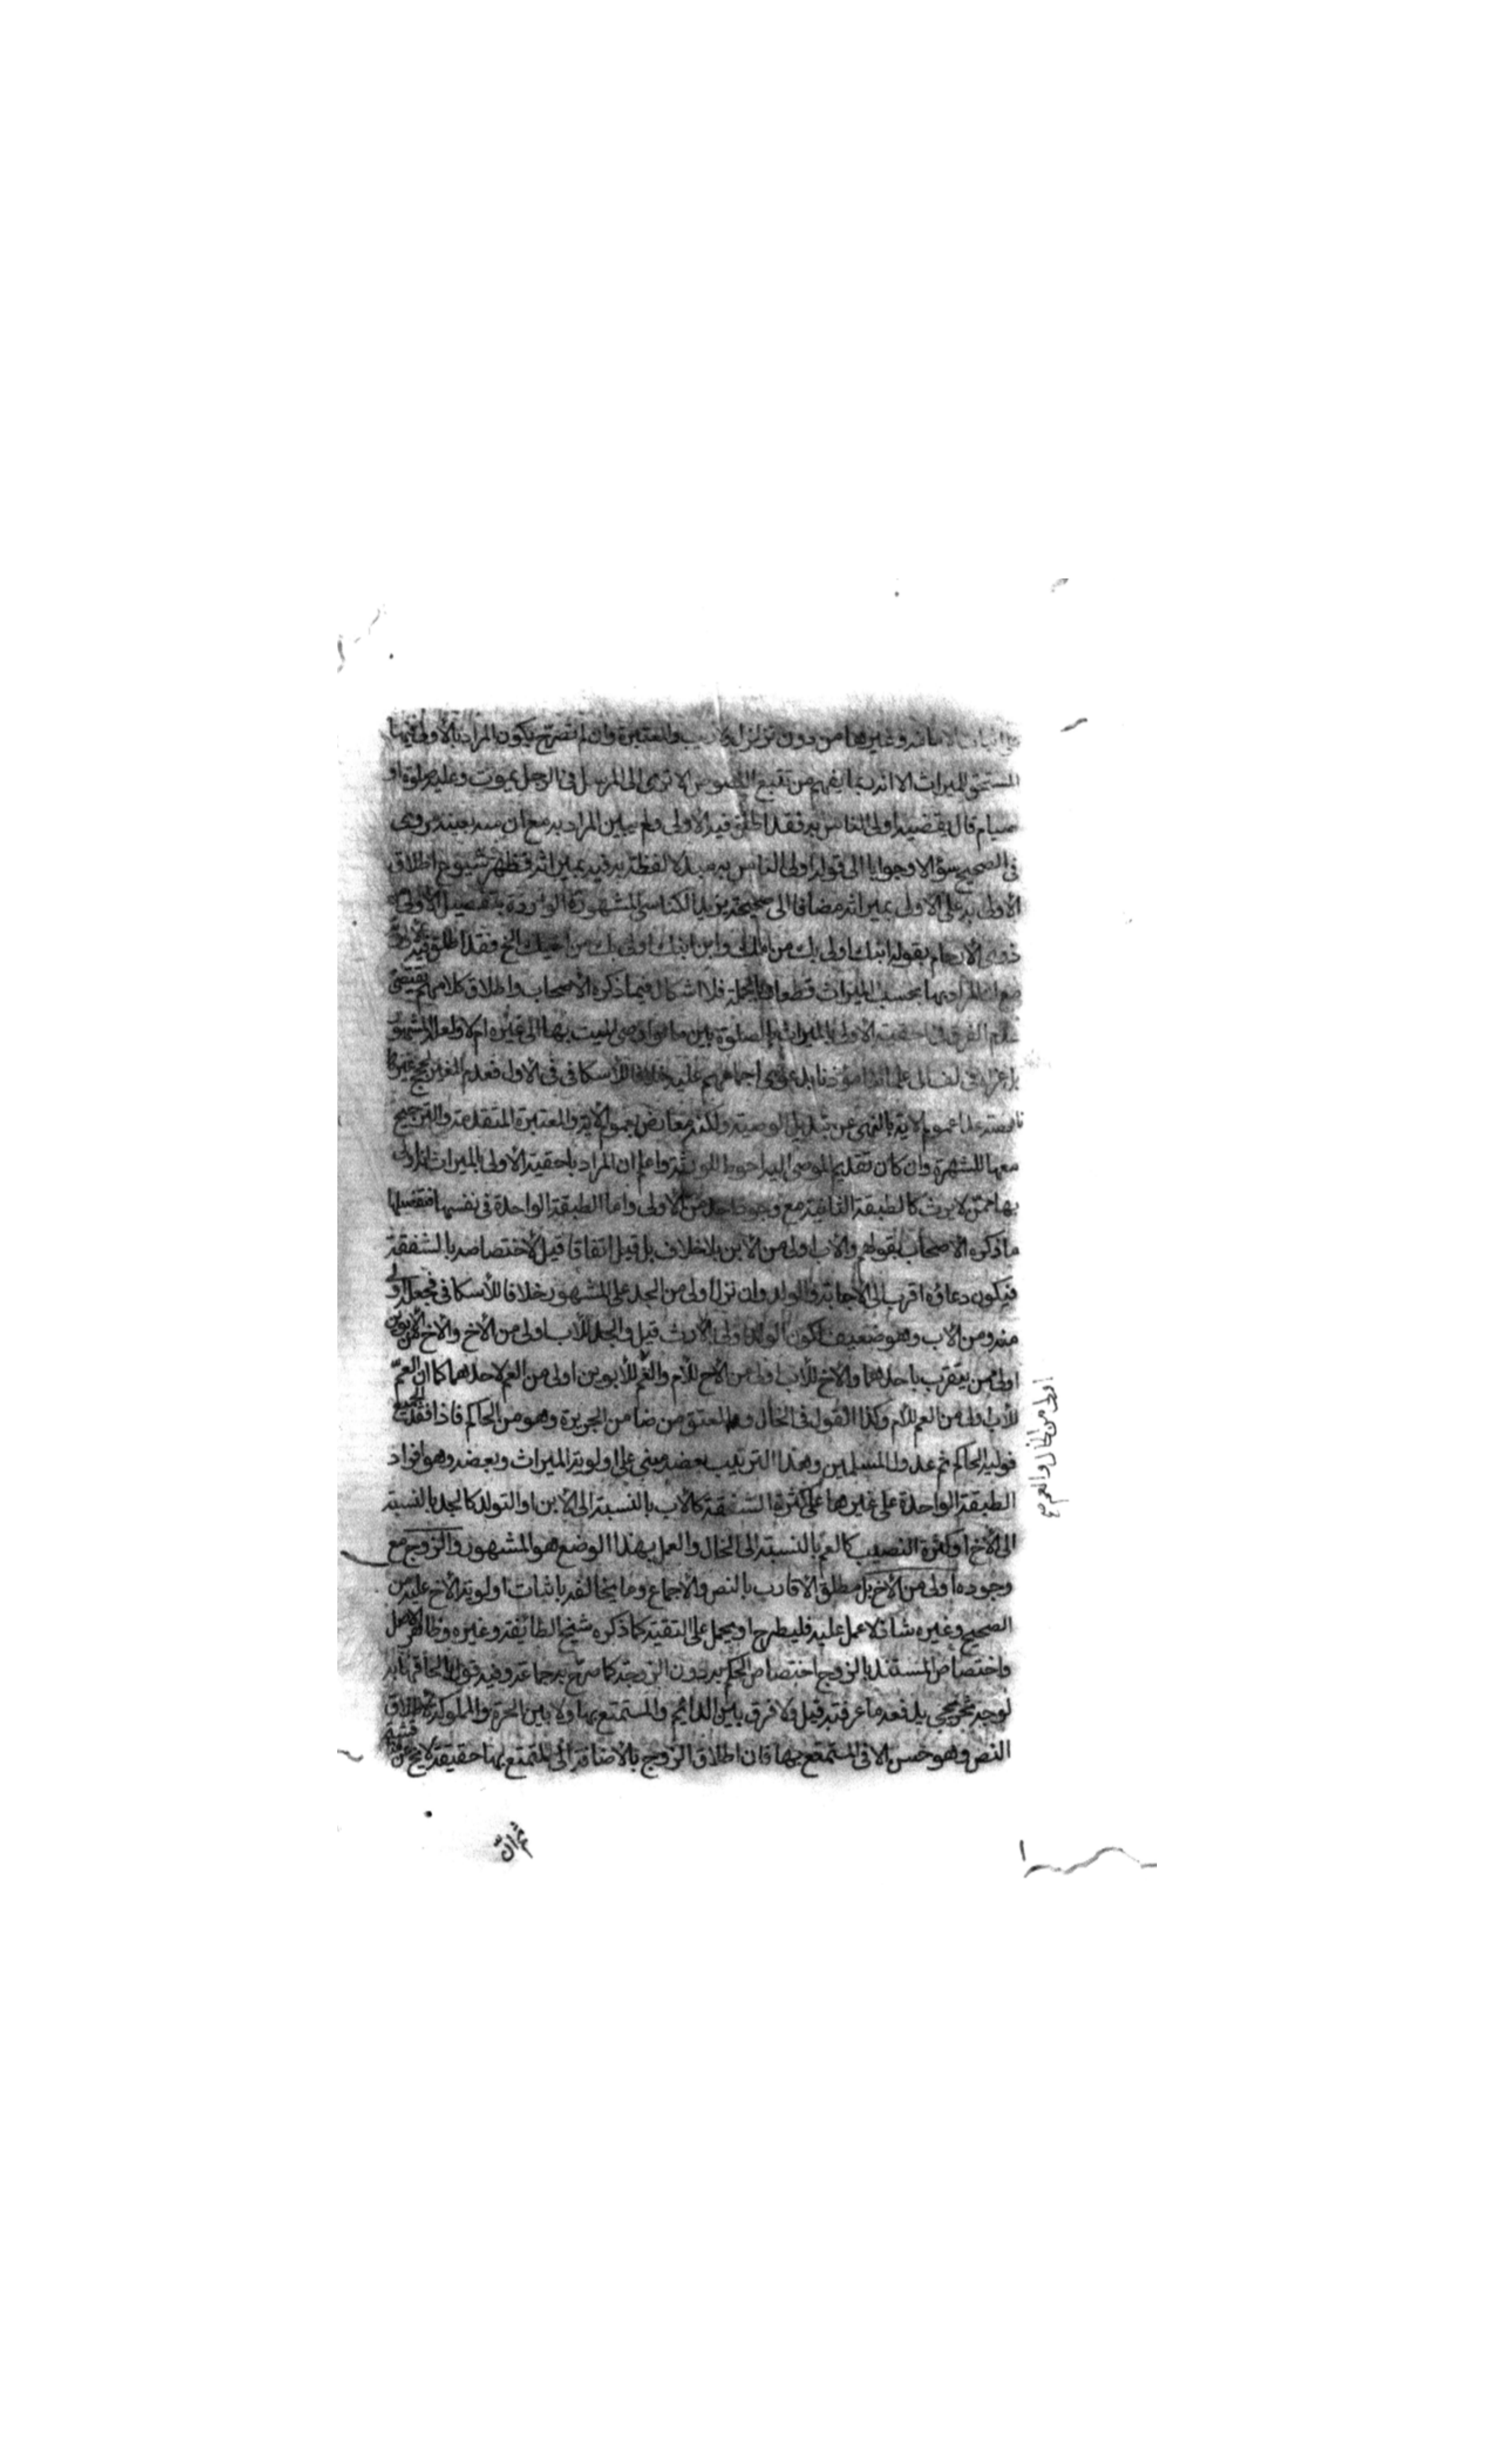 اثبات الامامة وغيرها من دون تزلزل ولا ريب والمعتبرة وان لم تصرح بكون المراد بالأولى فيها
المستحق للميراث الا انه ربما يفهم من تتبع النصوص الا ترى الى المرسل في الرجل يموت وعليه صلوة او
صيام قال يقضيه اولى الناس به فقد اطلق فيه الاولى ولم يبين المراد به مع ان مسئلة بعينه مروى
في الصحيح سؤالا وجوابا الى قوله اولى الناس به مبدلا لفظة به فيه بميراثه فظهر شيوع اطلاق
الأولى به على الاولى بميراثه مضافا الى صحيحة يزيد الكناسي المشهورة الواردة بتفصيل الأولى من
ذوى الارحام بقوله ابنك اولى بك من ابن ابنك وابن ابنك اولى بك من اخيك الخ فقد اطلق فيه
مع ان المراد بها بحسب الميراث قطعا وبالجملة فلا اشكال فيما ذكره الأصحاب واطلاق كلامهم يقتضى
عدم الفرق في احقية الاولى بالميراث بالصلوة بين ما لو اوصى الميت بها الى غيره ام لا ولعله المشهور
بل عزاه في لف الى علمائنا مؤذنا بدعوى اجماعهم عليه خلافا للأسكافى فى الاول فقدم الغير
لعموم الاية بالنهى عن تبديل الوصية ولكنه معارض بعموم الاية والمعتبرة المتقدمة والترجيح
معها للشهرة وان كان تقديم الموصى اليه احوط للورثة واعلم ان المراد باحقية الأولى بالميراث انه اولى
بها ممن لا يرث كالطبقة الثانية مع وجود احد من الاولى واما الطبقة الواحدة فى نفسها فتفصيلها
ما ذكره الاصحاب بقولهم والاب اولى من الابن بلا خلاف بل قيل اتفاقا قيل لأختصاصه بالشفقة
فيكون دعاؤه اقرب الى الاجابة والولد وان نزل اولى من الجد على المشهور خلافا للأسكافى فجعله اولى
منه ومن الاب وهو ضعيف لكون الولد اولى بالارث قيل والجد للأب اولى من الأخ والأخ من الأبوين
اولى ممن يتقرب باحدهما والاخ للأب اولى من الاخ للأم والعم للأبوين اولى من العم لاحدهما كما ان العم
للأب اولى من العم للأم وكذا القول فى الخال والمعتق من ضامن الجريرة وهو من الحاكم فاذا فقد الجميع
فوليه الحاكم ثم عدول المسلمين وهذا الترتيب بعضه مبنى على اولوية الميراث وبعضه وهو افراد
الطبقة الواحدة على غيرها على كثرة الشفقة كالاب بالنسبة الى الأبن او التولد كالجد بالنسبة
الى الأخ او كثرة النصيب كالعم بالنسبة الى الخال والعمل بهذا الوضع هو المشهور والزوج مع
وجوده اولى من الأخ بل مطلق الاقارب بالنص والاجماع وما يخالفه باثبات اولوية الأخ عليه من
الصحيح وغيره شاذ لا عمل عليه فليطرح او يحمل على التقية كما ذكره شيخ الطائفة وغيره وظاهر الاصل
واختصاص المستند بالزوج اختصاص الحكم به دون الزوجة كما صرح به جماعة وفيه قول بالحاقها به
لوجه غير مجد يدفعه ما عرفته قيل ولا فرق بين الدائم والمستمتع بها ولا بين الحرة والمملوكة لاطلاق
النص وهو حسن الا فى المستمتع بها فان اطلاق الزوج بالاضافة الى المتمتع بها حقيقة لا يخ عن مناقشة
اولى من الخال والعم مع